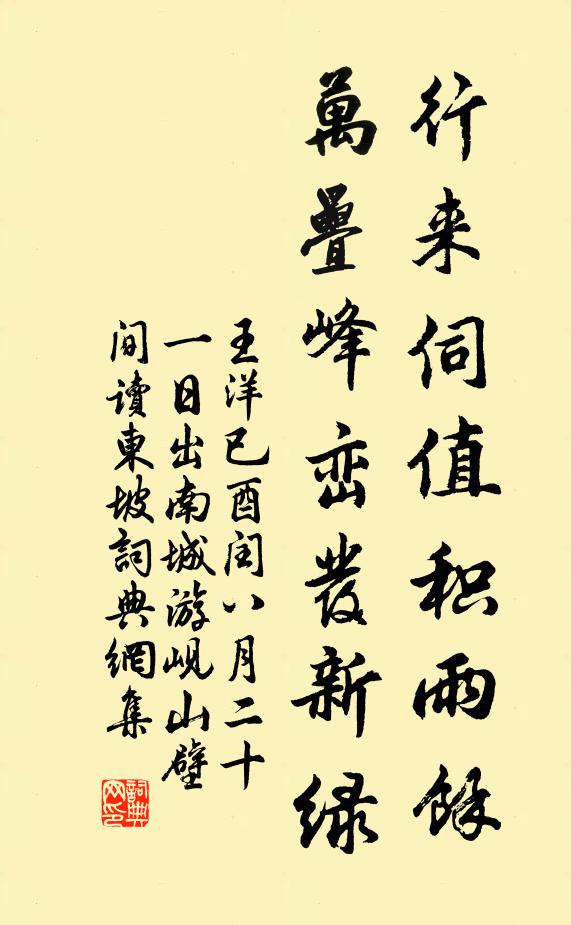 行来伺值积雨餘
萬疊峰峦發新緑
王洋己酉闰八月二十
一日出南城游岘山壁
间讀東坡詞典網集
詞典网印